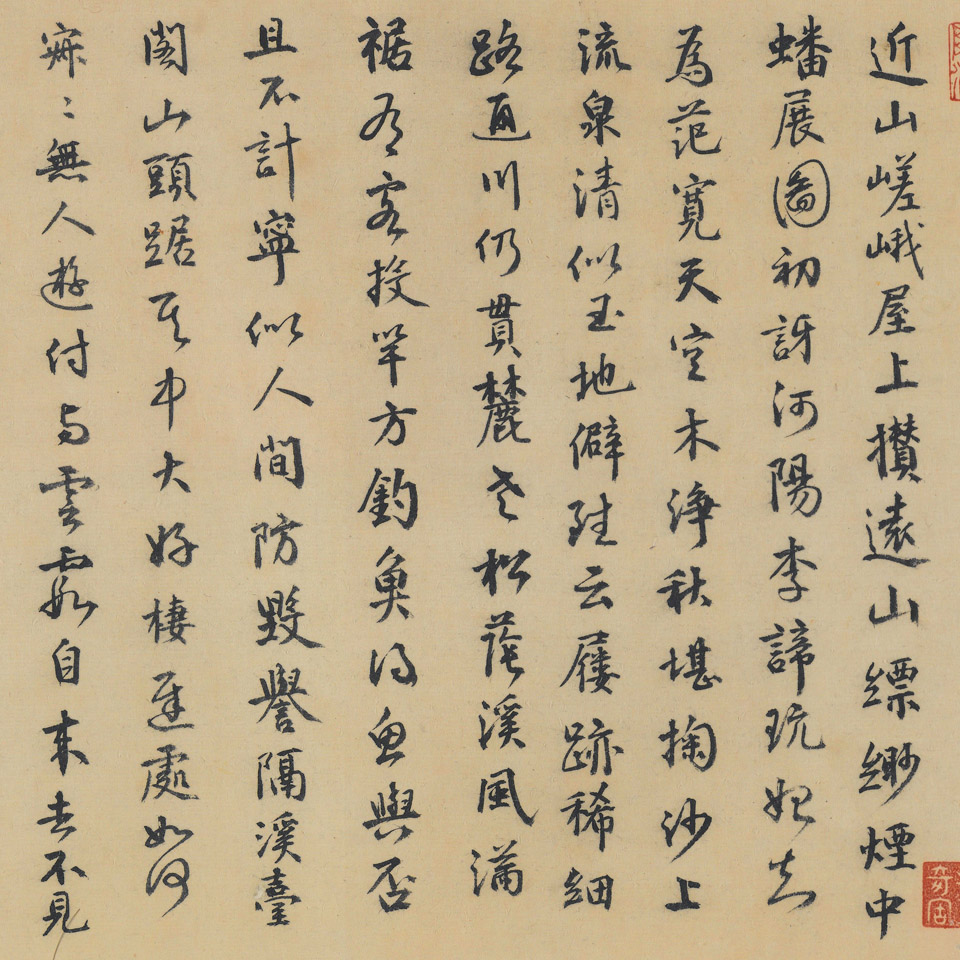 近山嵯峨屋上攢遠山縹緲煙中
蟠展圖初訝河陽李諦玩始知
為范寬天空木淨秋堪掬沙上
流泉清似玉地僻殊云屨跡稀細
路通川仍貫麓老松蔭溪風滿
裾有客投竿方釣魚得魚與否
且不計寧似人間防毀譽隔溪臺
閣山頭踞其中大好棲遲處如何
寂〻無人遊付與雲霞自來去不見
奇